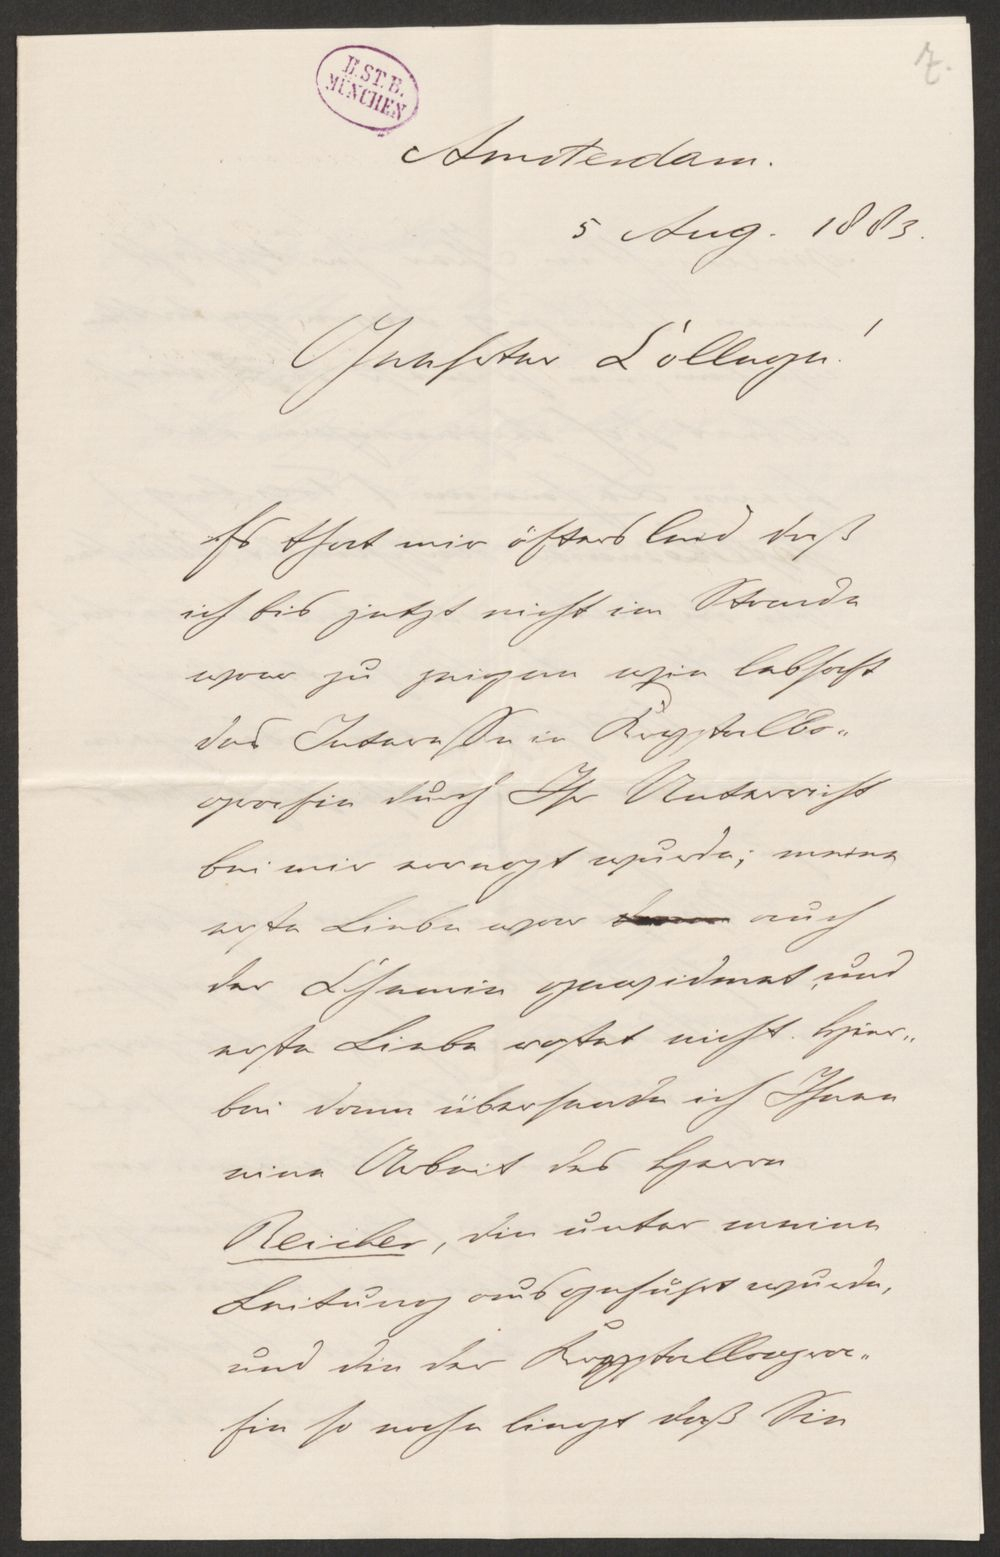 7.
B.ST.B.
MÜNCHEN
Amsterdam.
5 Aug. 1883.
Geehrter College!
Es thut mir öfters leid daß
ich bis jetzt nicht im Stande
war zu zeigen wie lebhaft
das Interesse in Krystallo„
graphie durch Ihr Unterricht
bei mir erregt wurde; meine
erste Liebe war auch
der Chemie gewidmet, und
erste Liebe rostet nicht. Hier„
bei denn übersende ich Ihnen
eine Arbeit des Herrn
Reicher, die unter meine
Leitung ausgeführt wurde,
und die der Krystallogra„
fie so nahe liegt daß Sie